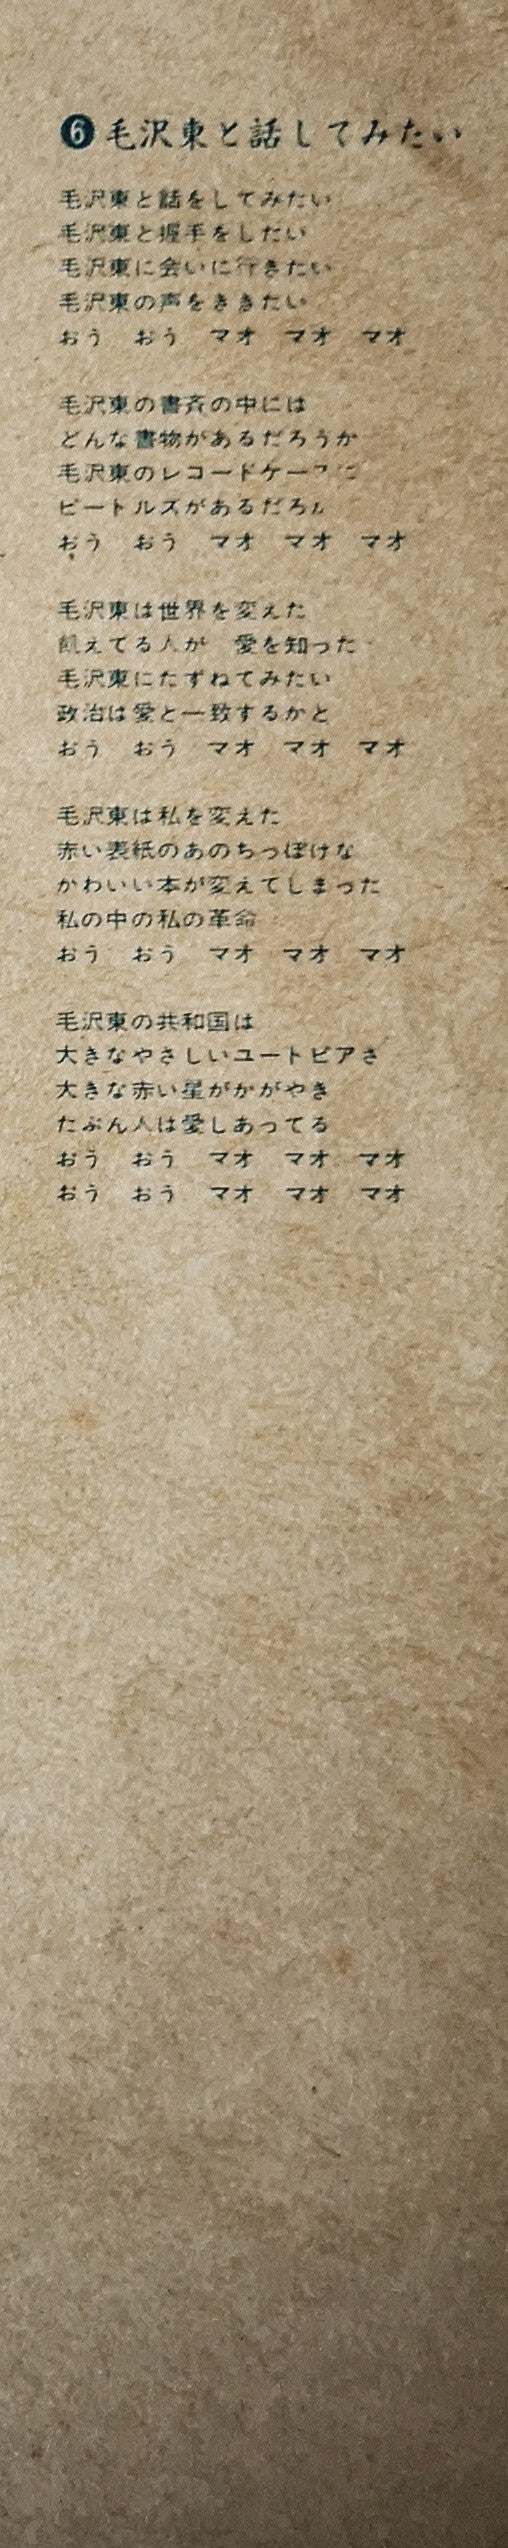 ❻毛沢東と話してみたい
毛沢東と話をしてみたい
毛沢東と握手をしたい
毛沢東に会いに行きたい
毛沢東の声をききたい
おう　おう　マオ　マオ　マオ
毛沢東の書斉の中には
どんな書物があるだろうか
毛沢東のレコードケースに
ビートルズがあるだろか
おう　おう　マオ　マオ　マオ
毛沢東は世界を変えた
飢えてる人が　愛を知った
毛沢東にたずねてみたい
政治は愛と一致するかと
おう　おう　マオ　マオ　マオ
毛沢東は私を変えた
赤い表紙のあのちっぽけな
かわいい本が変えてしまった
私の中の私の革命
おう　おう　マオ　マオ　マオ
毛沢東の共和国は
大きなやさしいユートピアさ
大きな赤い星がかがやき
たぶん人は愛しあってる
おう　おう　マオ　マオ　マオ
おう　おう　マオ　マオ　マオ